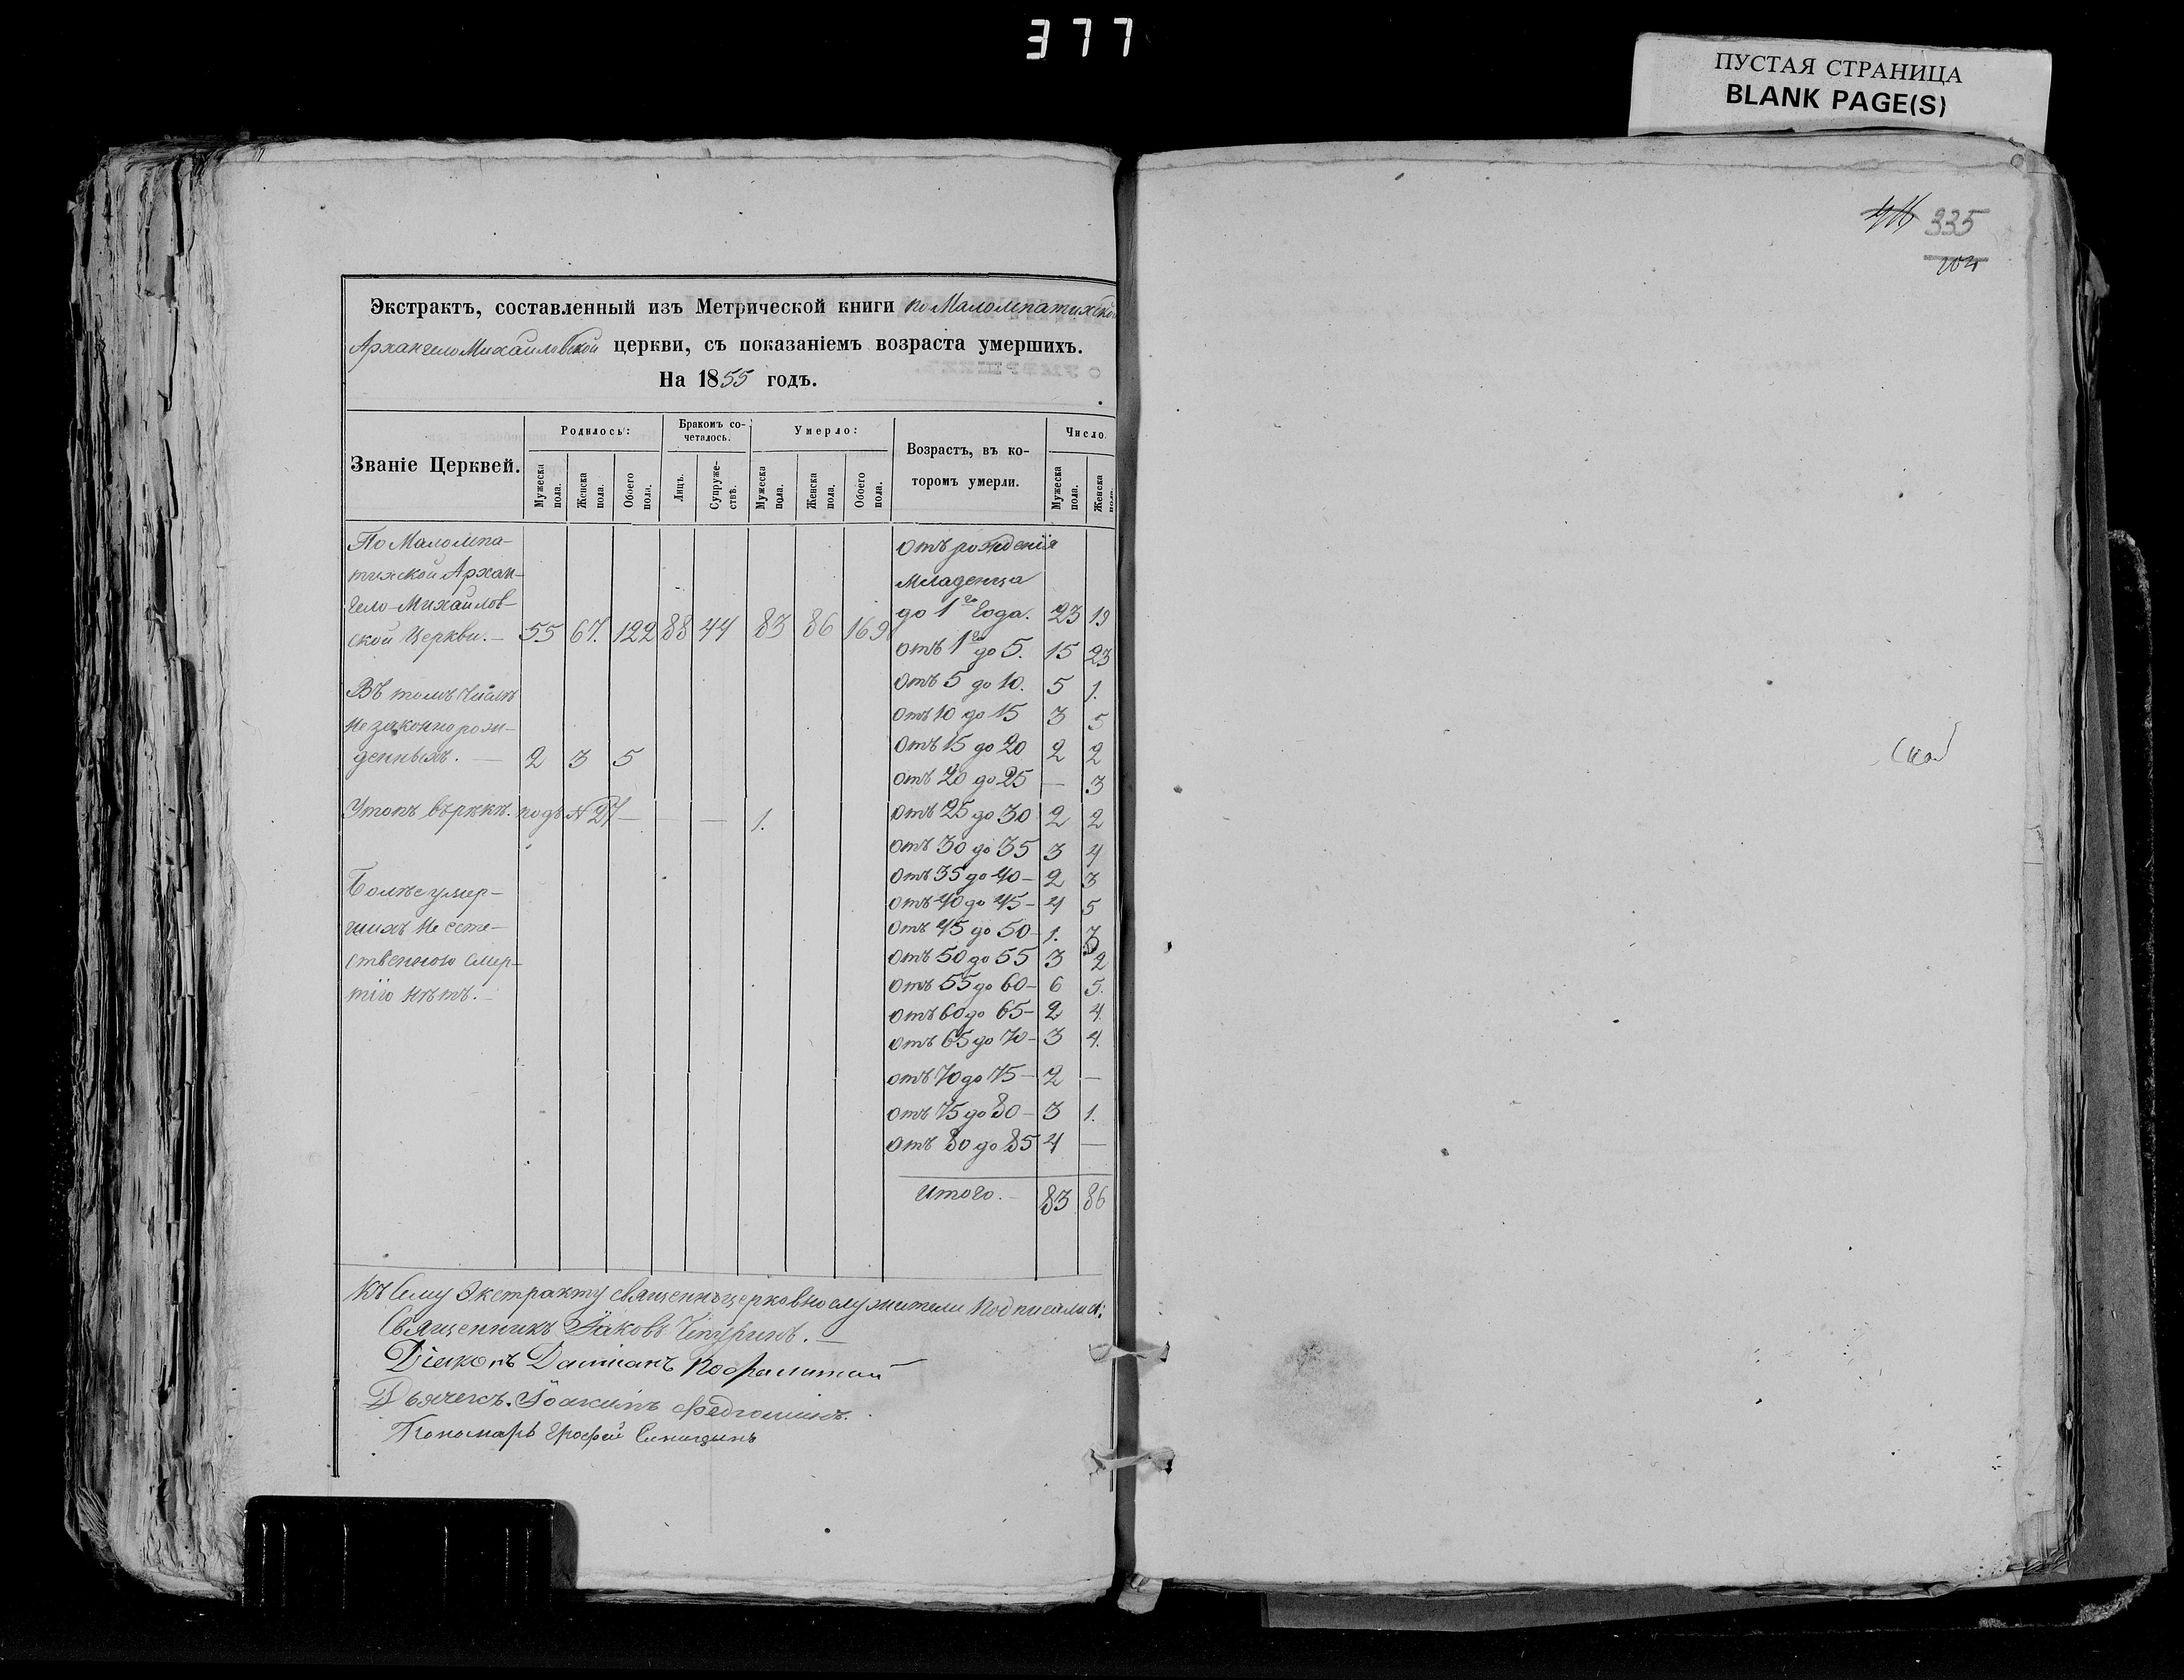 377
ПУСТАЯ СТРАНИЦА
BLANK PAGE(S)
335
Экстрактъ, составленный изъ Метрической книги по Малолепатихской
Архангело Михайловской церкви, съ показаніемъ возраста умершихъ.
На 1855 годъ.
Званіе Церквей. Родилось: Бракомъ сочеталось. Умерло: Возрастъ, въ которомъ умерли. Число
Мужеска пола. Женска пола. Обоего пола. Лицъ. Супружествъ. Мужеска пола. Женска пола. Обоего пола. Мужеска пола. Женска пола.
По Малолепа-
тихской Архан-
гело-Михайлов-
ской Церкви. — 55 67. 122 88 44 83 86 169
Въ томъ числѣ
незаконнорож-
денныхъ. — 2 3 5
Утопъ въ рѣкѣ. подъ № 27 — — — 1.
Болѣе умер-
шихъ не есте-
ственною смер-
тію нѣтъ. —
Отъ рожденія
младенца
до 1го года. 23 19
отъ 1го до 5. 15 23
отъ 5 до 10. 5 1.
отъ 10 до 15 3 5
отъ 15 до 20 2 2
отъ 20 до 25 — 3
отъ 25 до 30 2 2
отъ 30 до 35 3 4
отъ 35 до 40 — 2 3
отъ 40 до 45 — 4 5
отъ 45 до 50 — 1. 3
отъ 50 до 55 3 2
отъ 55 до 60 — 6 5.
отъ 60 до 65 — 2 4.
отъ 65 до 70 — 3 4.
отъ 70 до 75 — 2 —
отъ 75 до 80 — 3 1.
отъ 80 до 85 4 —
Итого. — 83 86
Къ сему Экстракту священноцерковнослужители подписались:
Священникъ Іаковъ Чепуринъ. —
Діаконъ Даміанъ
Дьячекъ. Іоакимъ
Пономарь Ерофей Синицынъ